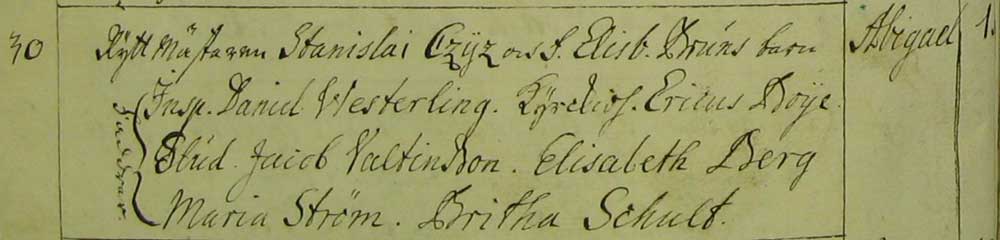 30 Rytt Mästaren Stanislai Czÿz och f. Elisb. Bruns barn Abigael 1.
Insp. Daniel Westerling. Kyrckioh. Ericus Boÿe.
Faddrar Stud. Jacob Valtinsson. Elisabeth Berg
Maria Ström. Britha Schult.